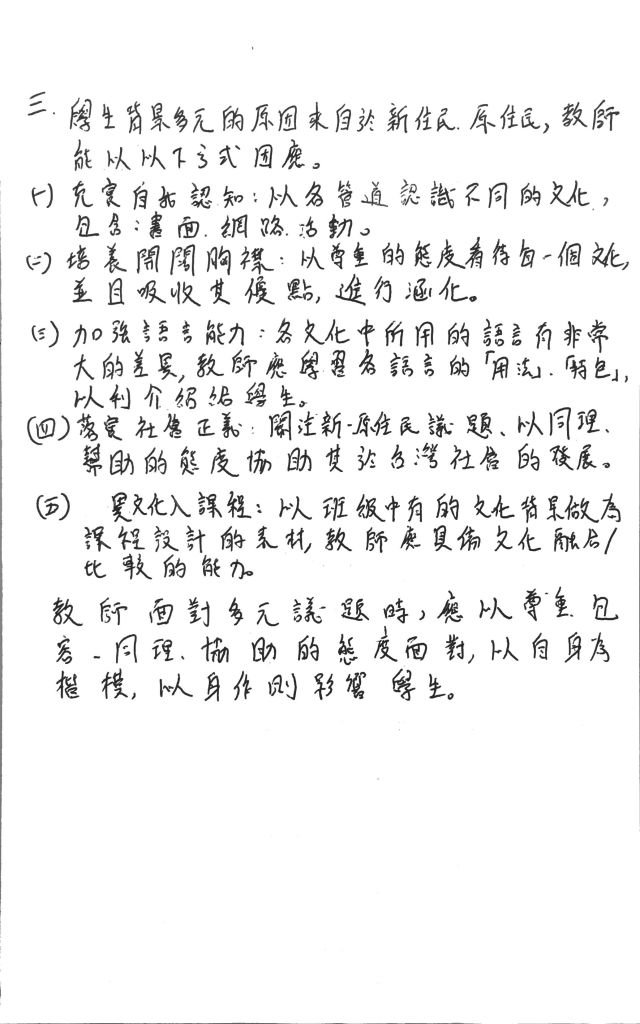 三. 學生背景多元的原因來自於新住民.原住民,教師
能以以下方式因應。
(一) 充實自我認知:以各管道認識不同的文化,
包含:書面.網路.活動。
(二) 培養開闊胸襟:以尊重的態度看待每一個文化,
並且吸收其優點,進行涵化。
(三) 加強語言能力:各文化中所用的語言有非常
大的差異,教師應學習各語言的「用法」.「特色」,
以利介紹給學生。
(四) 落實社會正義:關注新-原住民議題、以同理.
幫助的態度協助其於台灣社會的發展。
(五) 異文化入課程:以班級中有的文化背景做為
課程設計的素材,教師應具備文化融合/
比較的能力。
教師面對多元議題時,應以尊重.包
容-同理.協助的態度面對,以自身為
楷模,以身作則影響學生。